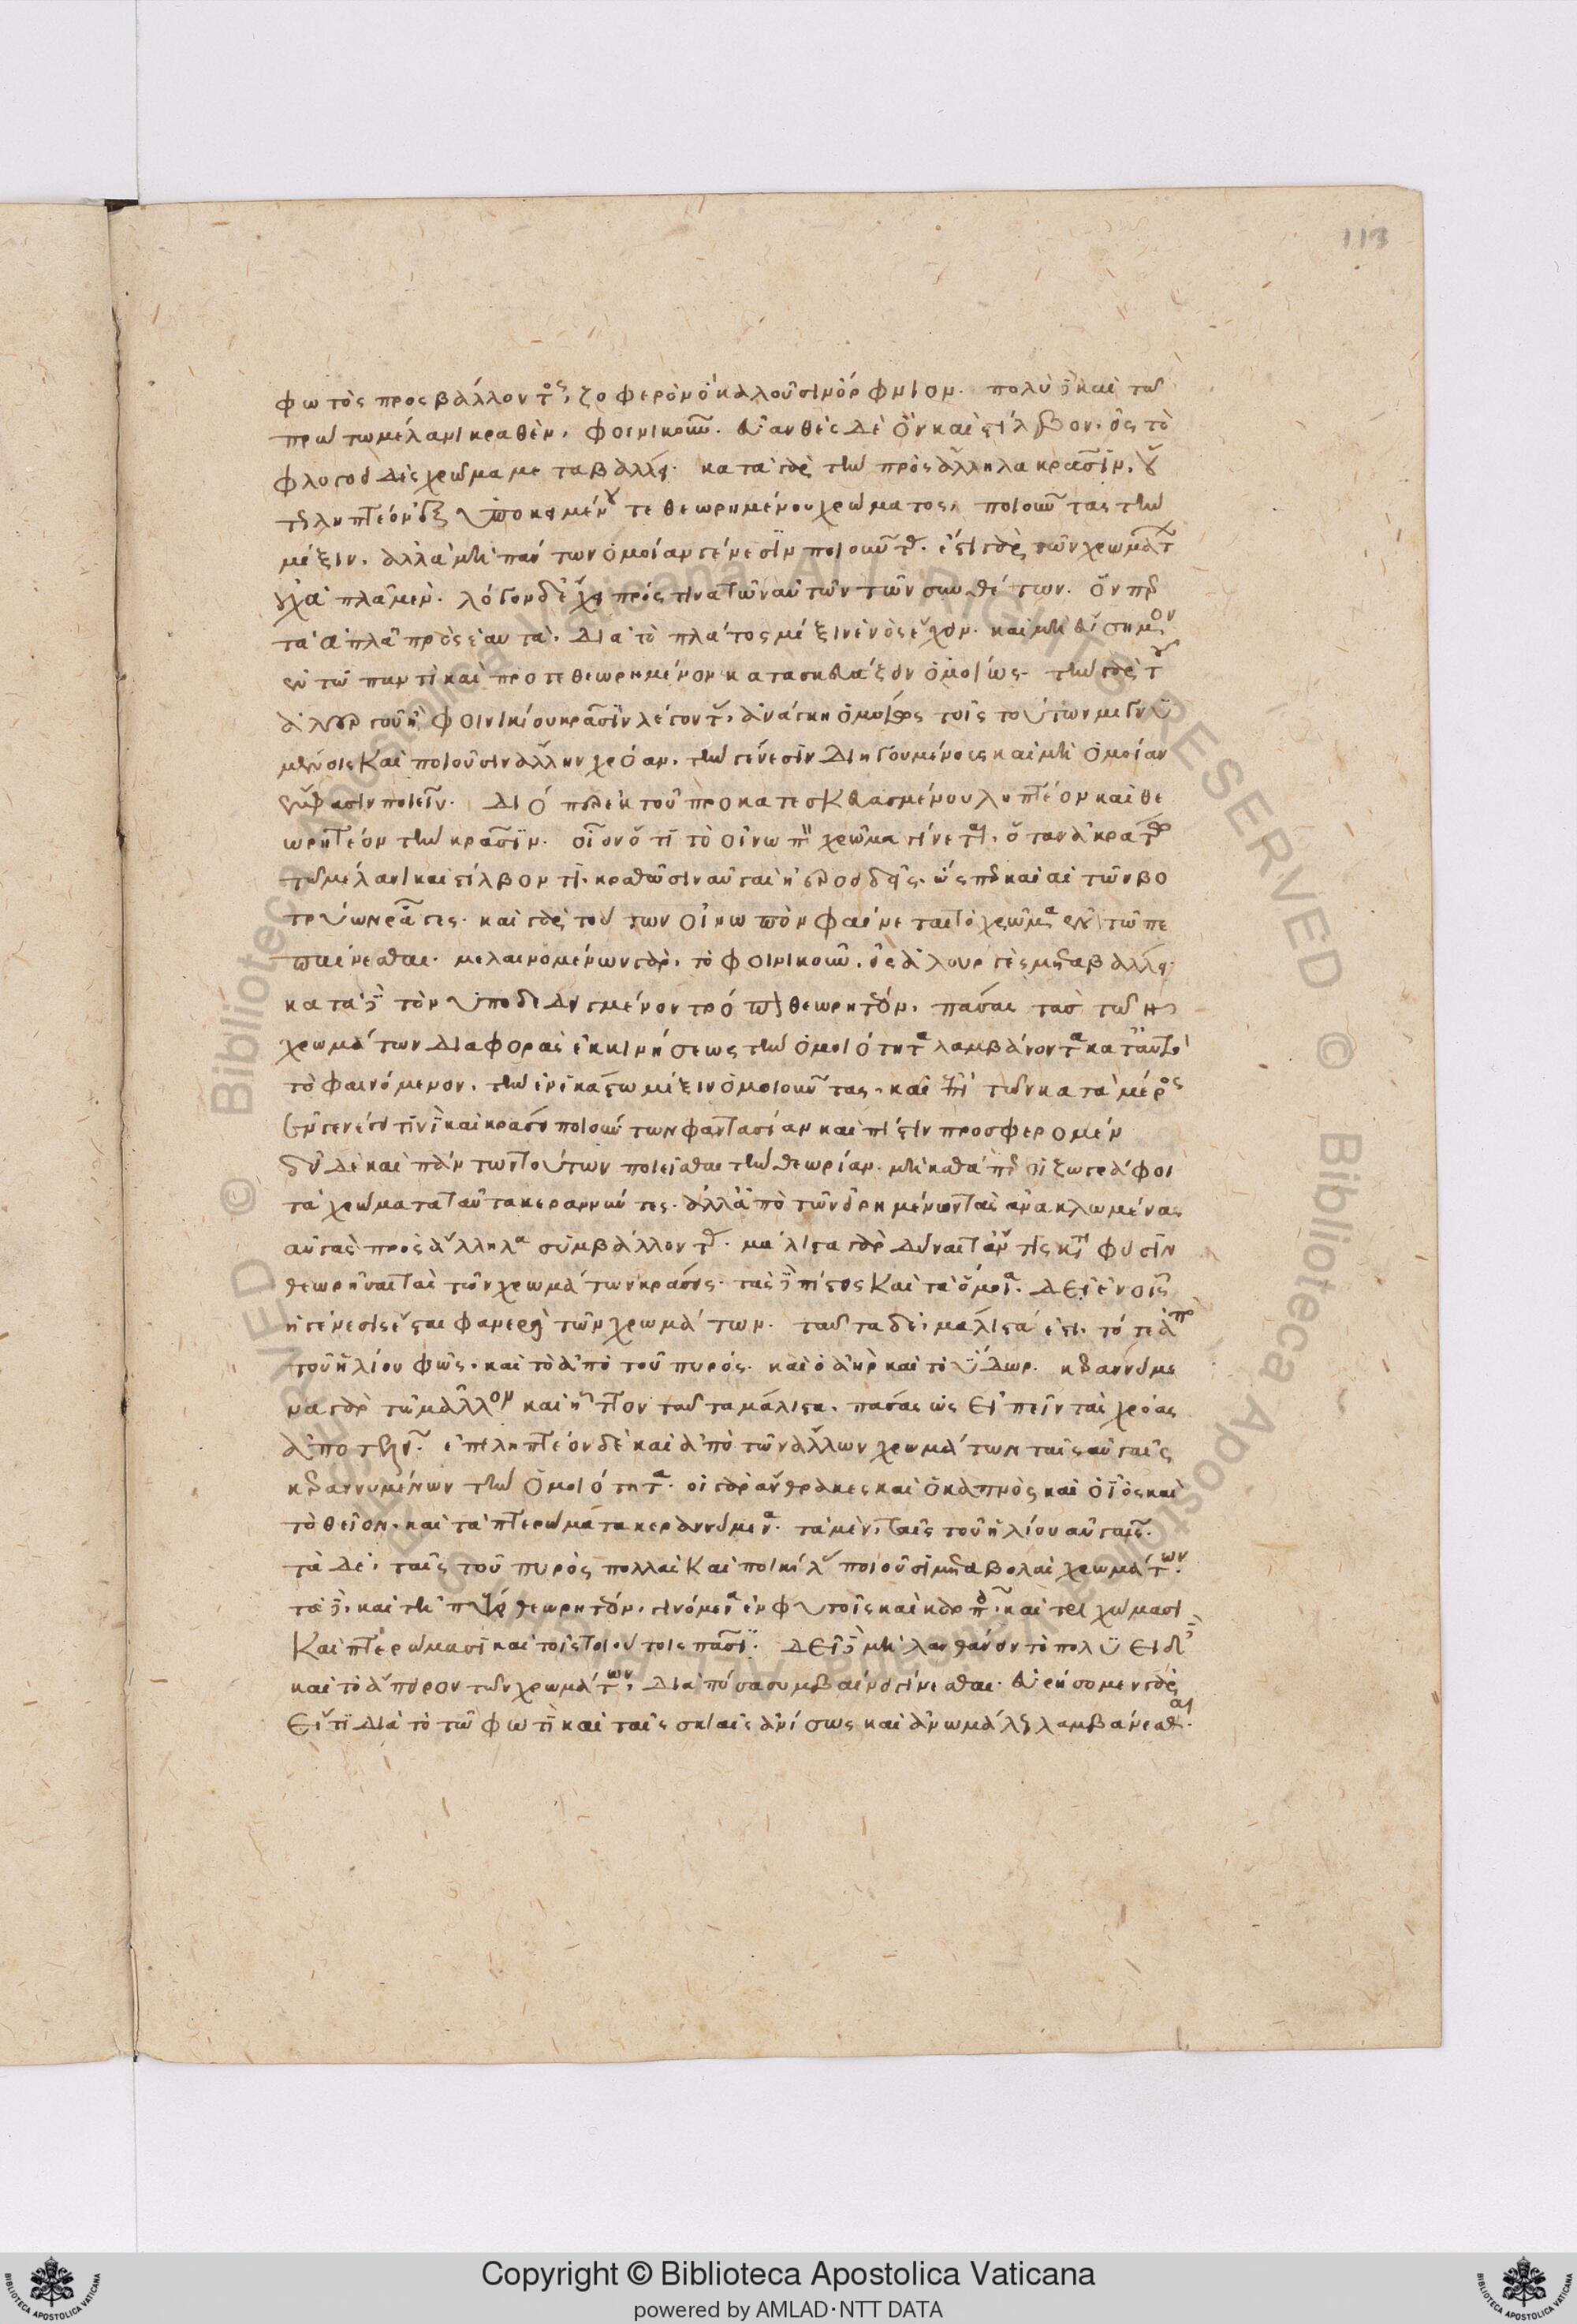 113
φωτὸς προσβάλλοντος, ζοφερὸν ὃ καλοῦσιν ὄρφνιον. πολὺ δὲ καὶ τῶ
πρώτω μέλανι κραθὲν, φοινικοῦν. εὐανθὲς δὲ ὂν καὶ στίλβον, εἰς τὸ
χρῶμα μεταβάλλει. κατὰ γὰρ τὴν πρὸς ἄλληλα κρᾶσιν,
ληπτέον ἐξ ὑποκειμένου τε θεωρημένου χρώματος, ποιοῦντας τὴν
μίξιν, ἀλλὰ μὴ πάντων ὁμοίαν γένεσιν ποιοῦντας. ἔστι γὰρ τῶν χρωμάτων
οὐχ ἁπλᾶ μὲν. λόγον δ' ἔχει πρός τινα τῶν αὐτῶν τῶν συνθέτων. ὅνπερ
τὰ ἁπλᾶ πρὸς ἑαυτὰ. διὰ τὸ πλάτος μίξιν ἑνὸς ἔχειν. καὶ μὴ εὔσημον
ἐν τῶ παντὶ καὶ προτεθεωρημένον κατασκευάζειν ὁμοίως. τὴν γὰρ τοῦ
ἁλουργοῦ ἢ φοινικίου κρᾶσιν λέγοντας, ἀνάγκη ὁμοίως τοῖς τούτων μιγνυ
μένοις καὶ ποιοῦσιν ἄλλην χρόαν, τὴν γένεσιν διηγουμένοις καὶ μὴ ὁμοίαν
ἔμφασιν ποιεῖν. διόπερ ἐκ τοῦ προκατεσκευασμένου ληπτέον καὶ θε
ωρητέον τὴν κρᾶσιν. οἷον ὅτι τὸ οἰνωπὸν χρῶμα γίνεται, ὅταν ἀκράτω
τῶ μέλανι καὶ στίλβοντι κραθῶσιν αὐγαὶ ἠεροειδεῖς. ὥσπερ καὶ αἱ τῶν βο
τρύων ῥᾶγες. καὶ γὰρ τούτων οἰνωπὸν φαίνεται τὸ χρῶμα ἐν τῶ πε
παίνεσθαι. μελαινομένων γὰρ, τὸ φοινικοῦν, εἰς ἁλουργὲς μεταβάλλει.
κατὰ δὲ τὸν ὑποδεδειγμένον τρόπον θεωρητέον, πάσας τὰς τῶν
χρωμάτων διαφορὰς ἐκ κινήσεως τὴν ὁμοιότητα λαμβάνοντα κατ' αὐτὸ
τὸ φαινόμενον, τὴν ἐν ἑκάστω μίξιν ὁμοιοῦντας, καὶ ἐπὶ τῶν κατὰ μέρος
ἐν γενέσει τινὶ καὶ κράσει ποιούντων φαντασίαν καὶ πίστιν προσφερομέν
δεῖ δὲ καὶ πάντων τούτων ποιεῖσθαι τὴν θεωρίαν. μὴ καθάπερ οἱ ζωγράφοι
τὰ χρώματα ταῦτα κεραννύντες. ἀλλ' ἀπὸ τῶν εἰρημένων τὰς ἀνακλωμένας
αὐγὰς πρὸς ἀλλήλα συμβάλλοντας. μάλιστα γὰρ δύναιτ' ἄν τις κατὰ φύσιν
θεωρῆσαι τὰς τῶν χρωμάτων κράσεις. τὰς δὲ πίστεις καὶ τὰ ὅμοια. δεῖ ἐν οἷς
ἡ γένεσις ἔσται φανερὰ τῶν χρωμάτων. ταῦτα δὲ, μάλιστά ἐστι. τό τε ἀπὸ
τοῦ ἡλίου φῶς, καὶ τὸ ἀπὸ τοῦ πυρός. καὶ ὁ ἀὴρ καὶ τὸ ὕδωρ. κεραννύμε
να γὰρ τῶ μᾶλλον καὶ ἧττον ταῦτα μάλιστα, πάσας ὡς εἰπεῖν τὰς χρόας
ἀποτελεῖ. ἔτι ληπτέον δὲ καὶ ἀπὸ τῶν ἄλλων χρωμάτων ταῖς αὐγαῖς
κεραννυμένων τὴν ὁμοιότητα. οἱ γὰρ ἄνθρακες καὶ ὁ καπνὸς καὶ ὁ ἰὸς καὶ
τὸ θεῖον, καὶ τὰ πτερώματα κεραννύμενα. τὰ μὲν, ταῖς τοῦ ἡλίου αὐγαῖς.
τὰ δὲ, ταῖς τοῦ πυρὸς πολλὰς καὶ ποικίλας ποιοῦσι μεταβολὰς χρωμάτων.
τὰ δὲ, καὶ τῆ πέψει θεωρητέον, γινόμενα ἐν φυτοῖς καὶ καρποῖς, καὶ τριχώμασι
καὶ πτερώμασι καὶ τοῖς τοιούτοις πᾶσι. δεῖ δὲ μὴ λανθάνειν τὸ πολυειδὲς
καὶ τὸ ἄπειρον τῶν χρωμάτων, διὰ πόσα συμβαίνει γίνεσθαι. εὑρήσομεν γὰρ
εἴ τι διὰ τὸ τῶ φωτὶ καὶ ταῖς σκιαῖς ἀνίσως καὶ ἀνωμάλως λαμβάνεσθαι.
© Biblioteca Apostolica Vaticana ALL RIGHTS RESERVED
Copyright © Biblioteca Apostolica Vaticana
powered by AMLAD·NTT DATA
BIBLIOTECA APOSTOLICA VATICANA
BIBLIOTECA APOSTOLICA VATICANA